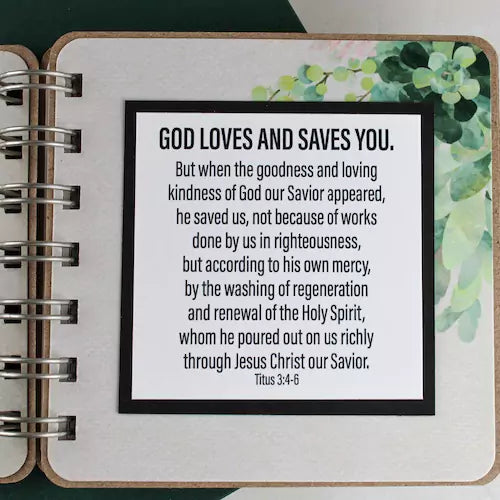 GOD LOVES AND SAVES YOU.
But when the goodness and loving
kindness of God our Savior appeared,
he saved us, not because of works
done by us in righteousness,
but according to his own mercy,
by the washing of regeneration
and renewal of the Holy Spirit,
whom he poured out on us richly
through Jesus Christ our Savior.
Titus 3:4-6